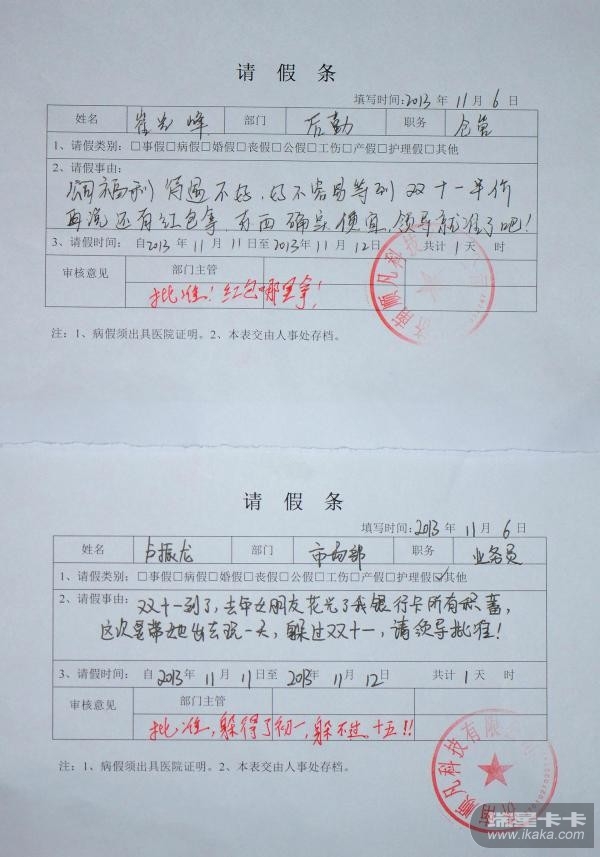 请 假 条
填写时间:2013 年 11 月 6 日
姓名 崔 峰 部门 后勤 职务 仓管
1、请假类别:□事假□病假□婚假□丧假□公假□工伤□产假□护理假□其他
2、请假事由:
公司福利待遇不好,好不容易等到双十一半价
再说还有红包拿,东西确实便宜,领导就准了吧!
3、请假时间: 自2013年 11月 11日至2013年11月 12日 共计 1 天 时
审核意见 部门主管
批准!红包哪里拿!
济南顺凡科技
注:1、病假须出具医院证明。2、本表交由人事处存档。
请 假 条
填写时间:2013 年 11 月 6 日
姓名 卢振龙 部门 市场部 职务 业务员
1、请假类别:□事假□病假□婚假□丧假□公假□工伤□产假□护理假☑其他
2、请假事由: 双十一到了,去年女朋友花光了我银行卡所有积蓄,
这次要带她出去玩一天,躲过双十一,请领导批准!
3、请假时间: 自 2013年 11月 11日至 2013年 11月 12日 共计 1天 时
审核意见 部门主管
批准,躲得了初一,躲不过十五!!
济南顺凡科技有限
注:1、病假须出具医院证明。2、本表交由人事处存档。
瑞星卡卡
www.ikaka.com